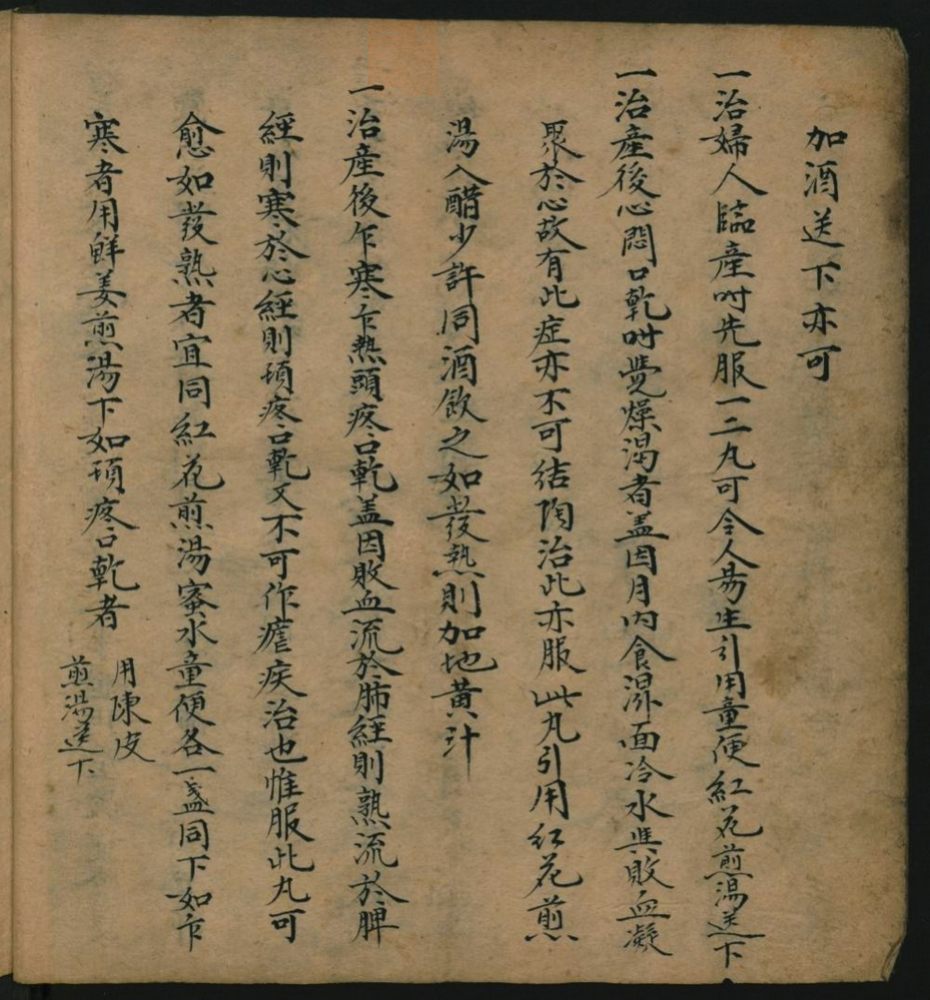 加酒送下亦可
一治婦人臨產时先服一二丸可令人易生引用童便紅花煎湯送下
一治產後心悶口乾时覺燥渴者盖因月内食湿面冷水與敗血凝
聚於心故有此症亦不可结陶治此亦服此丸引用红花煎
湯入醋少許同酒飲之如發熱則加地黄汁
一治產後乍寒乍熱頭疼口乾盖因敗血流於肺經則熟流於脾
經則寒於心經則頭疼口乾又不可作瘧疾治也惟服此丸可
愈如發熟者宜同紅花煎湯蜜水童便各一盞同下如乍
寒者用鮮姜煎湯下如頭疼口乾者
用陳皮
煎湯送下